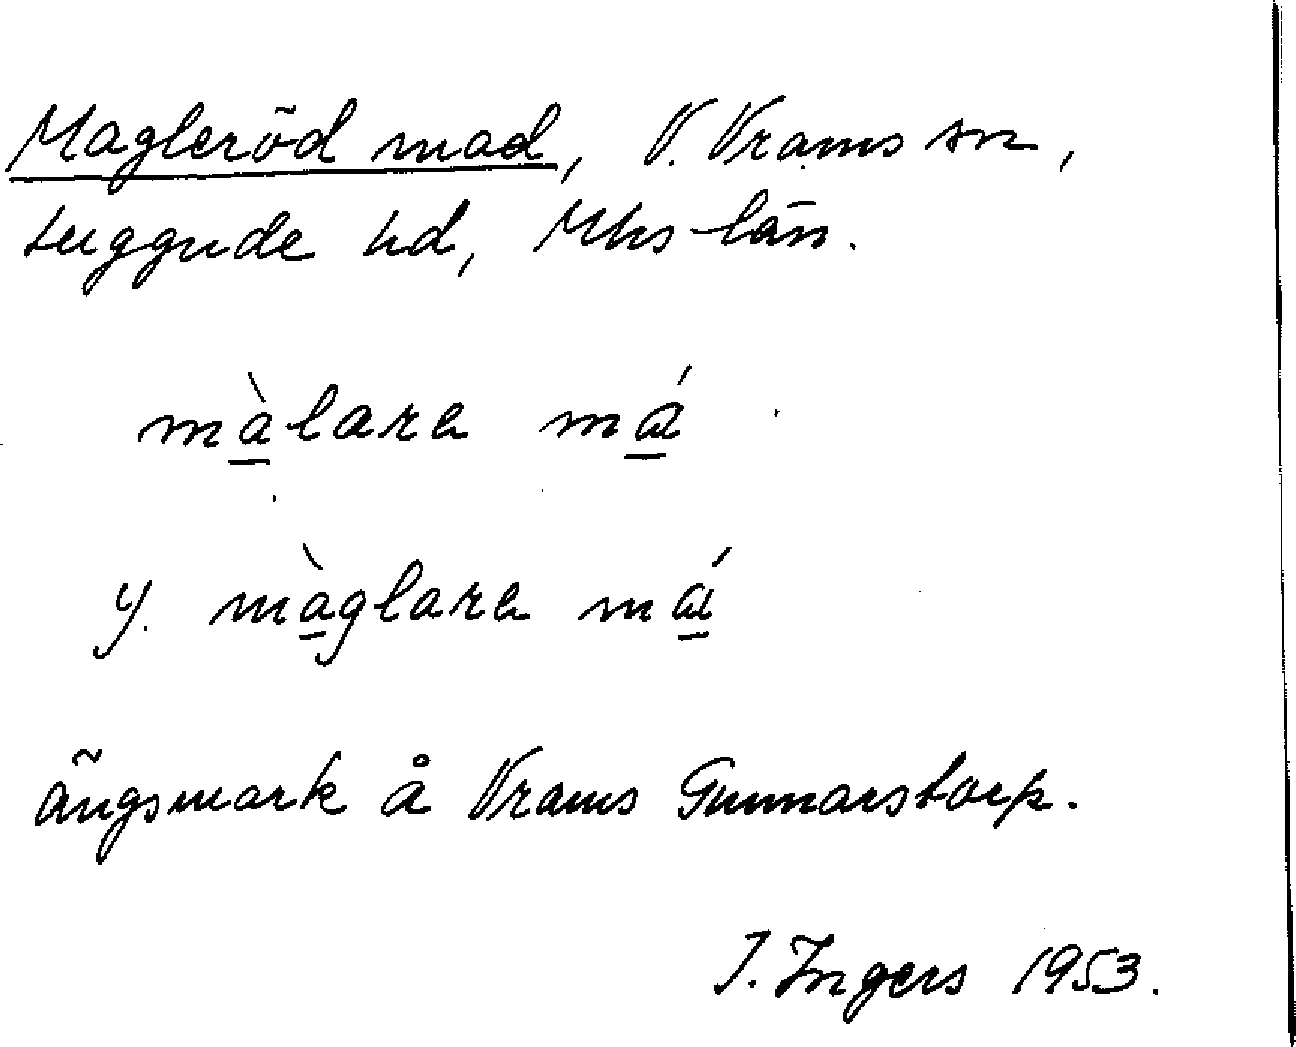 Magleröd mad, V. Vrams sn,
Luggude hd, Mhs län.
màlara má
y. màglara má
ängsmark å Vrams Gunnarstorp.
I. Ingers 1953.